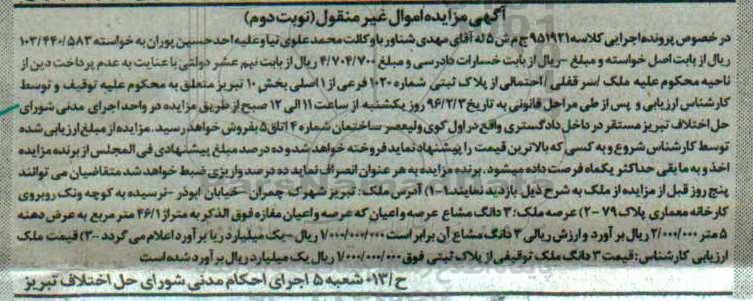 آگهی مزایده اموال غیر منقول (نوبت دوم)
در خصوص پرونده اجرایی کلاسه ۹۵۱۹۲۱ ج م ش ۵ له آقای مهدی شناور با وکالت محمد علوی نیا و علیه احد حسین پوران به خواسته ۱۰۳/۴۴۰/۵۸۳
ریال از بابت اصل خواسته و مبلغ -ریال از بابت خسارات دادرسی و مبلغ ۴/۷۰۴/۷۰۰ ریال از بابت نیم عشر دولتی با عنایت به عدم پرداخت دین از
ناحیه محکوم علیه ملک /سرقفلی /احتمالی از پلاک ثبتی شماره ۱۰۲۰ فرعی از ۱ اصلی بخش ۱۰ تبریز متعلق به محکوم علیه توقیف و توسط
کارشناس ارزیابی و پس از طی مراحل قانونی به تاریخ ۹۶/۲/۳ روز یکشنبه از ساعت ۱۱ الی ۱۲ صبح از طریق مزایده در واحد اجرای مدنی شورای
حل اختلاف تبریز مستقر در داخل دادگستری واقع در اول کوی ولیعصر ساختمان شماره ۴ اتاق ۵ بفروش خواهد رسید. مزایده از مبلغ ارزیابی شده
توسط کارشناس شروع و به کسی که بالاترین قیمت را پیشنهاد نماید فروخته خواهد شد و ده درصد مبلغ پیشنهادی فی المجلس از برنده مزایده
اخذ و به مابقی حداکثر یکماه فرصت داده میشود. برنده مزایده به هر عنوان انصراف نماید ده درصد واریزی ضبط خواهد شد متقاضیان می توانند
پنج روز قبل از مزایده از ملک به شرح ذیل بازدید نمایند: ۱-۱) آدرس ملک: تبریز شهرک چمران -خیابان ابوذر -نرسیده به کوچه ونک روبروی
کارخانه معماری پلاک ۷۹ -۲) عرصه ملک: ۳ دانگ مشاع عرصه و اعیان که عرصه و اعیان مغازه فوق الذکر به متراژ ۴۶/۱ متر مربع به عرض دهنه
۵ متر ۲/۰۰۰/۰۰۰ ریال برآورد و ارزش ریالی ۳ دانگ مشاع آن برابر است ۱/۰۰۰/۰۰۰/۰۰۰ ریال -یک میلیارد ریا برآورد اعلام می گردد -۳) قیمت ملک
ارزیابی کارشناس: قیمت ۳ دانگ ملک توقیفی از پلاک ثبتی فوق ۱/۰۰۰/۰۰۰/۰۰۰ ریال یک میلیارد ریال برآورد شده است
ح/۰۱۳ شعبه ۵ اجرای احکام مدنی شورای حل اختلاف تبریز